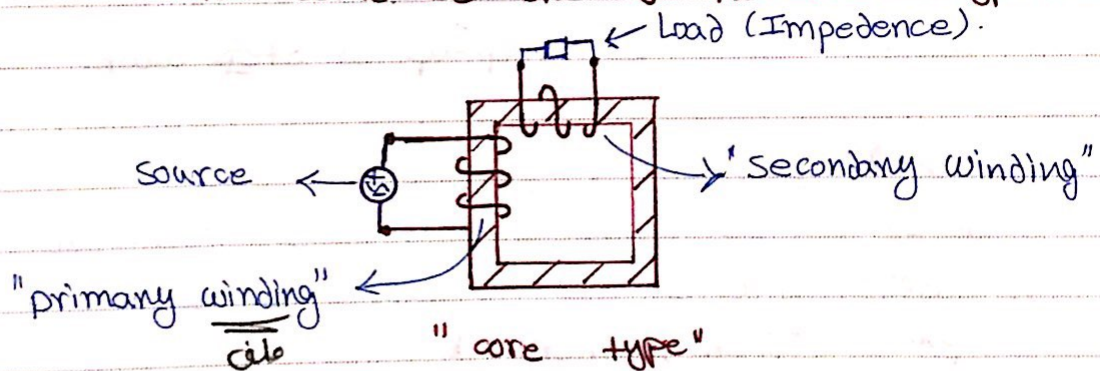 Load (Impedence).
source
"secondary winding"
"primary winding"
ملف
"core type"